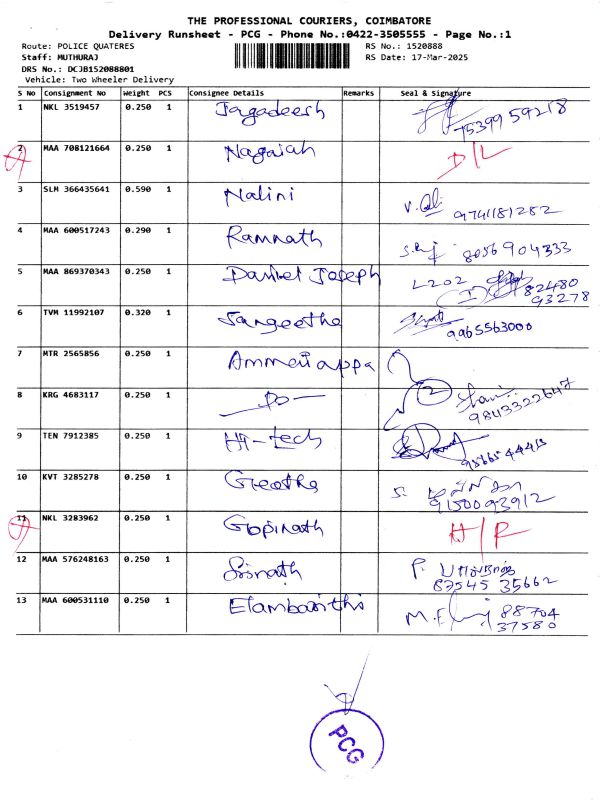 THE PROFESSIONAL COURIERS, COIMBATORE
Delivery Runsheet - PCG - Phone No.:0422-3505555 - Page No.:1
Route: POLICE QUATERES RS No.: 1520888
Staff: MUTHURAJ RS Date: 17-Mar-2025
DRS No.: DCJB152088801
Vehicle: Two Wheeler Delivery
S No Consignment No Weight PCS Consignee Details Remarks Seal & Signature
1 NKL 3519457 0.250 1 Jagadeesh 7539959218
2 MAA 708121664 0.250 1 Nagaiah D/L
3 SLM 366435641 0.590 1 Nalini 9741181282
4 MAA 600517243 0.290 1 Ramnath 8056904333
5 MAA 869370343 0.250 1 Daniel Joseph L202 82480
93278
6 TVM 11992107 0.320 1 Sangeetha 9965563000
7 MTR 2565856 0.250 1 Ammaiappa
8 KRG 4683117 0.250 1 -Do- 2 9843322647
9 TEN 7912385 0.250 1 Hi-tech
10 KVT 3285278 0.250 1 Geetha 9150093912
11 NKL 3283962 0.250 1 Gopinath
12 MAA 576248163 0.250 1 Srinath 87545 35662
13 MAA 600531110 0.250 1 Elambarithi 88704
37580
PCG